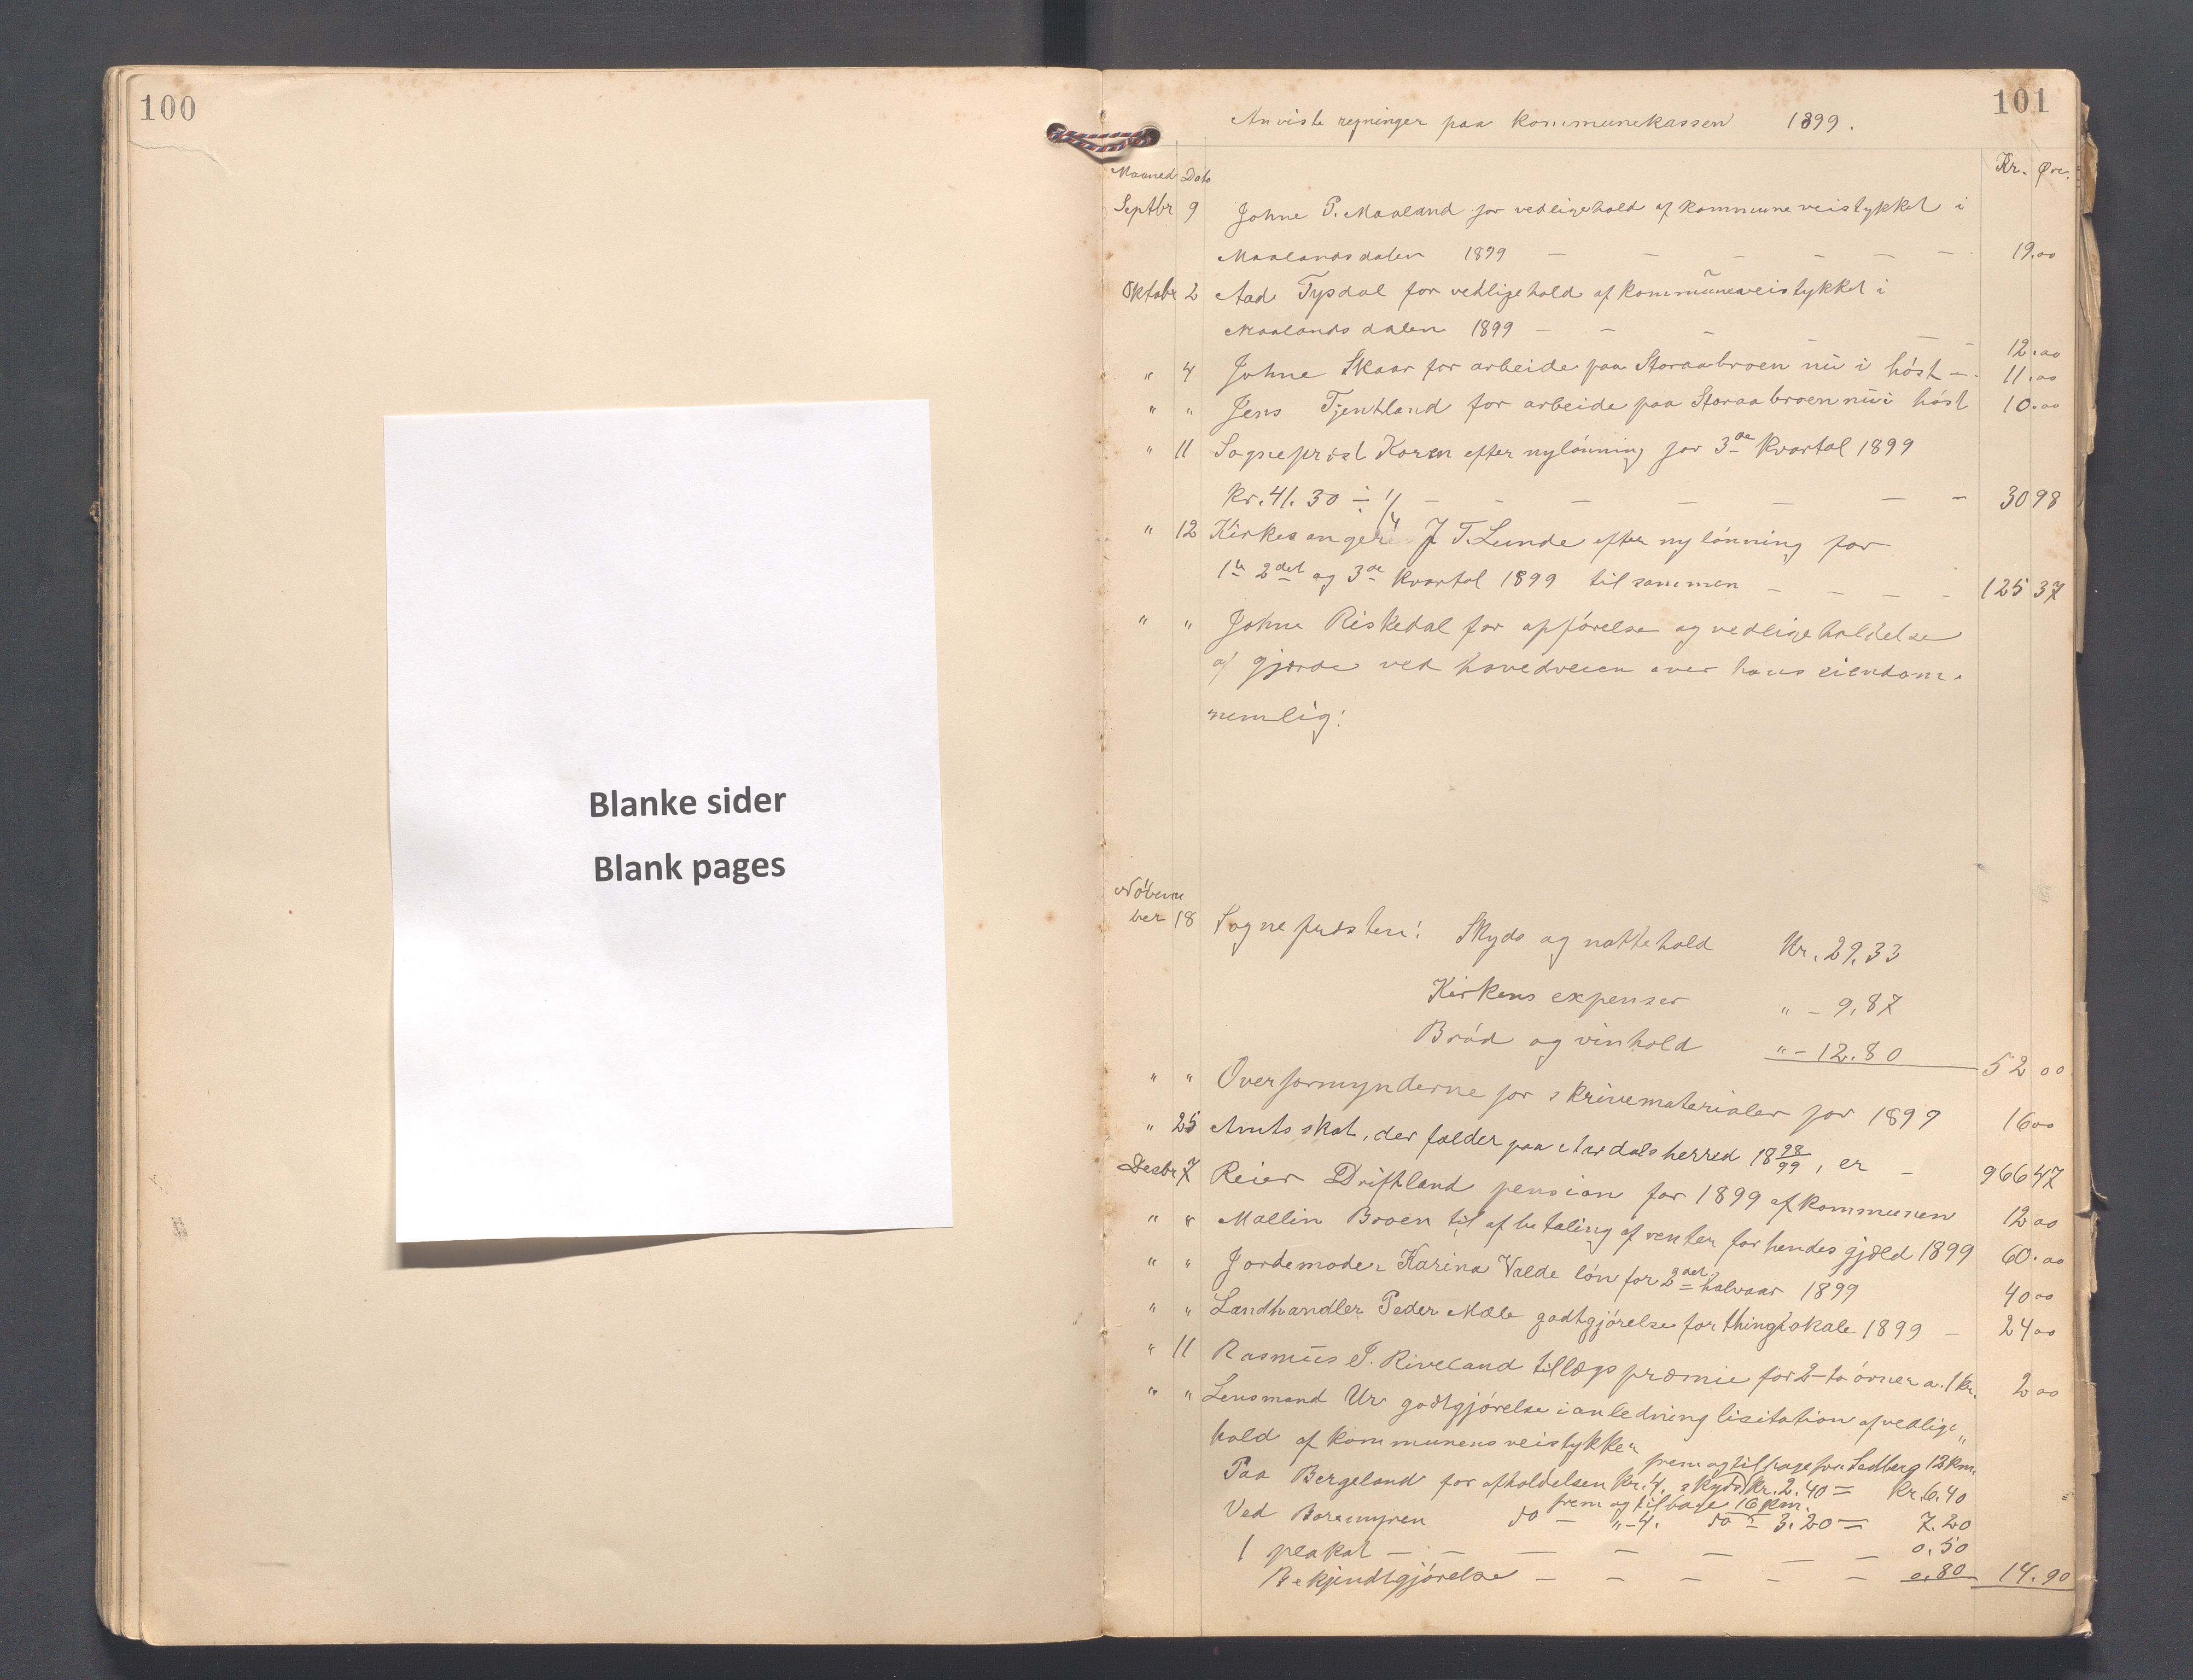 100
Blanke sider
Blank pages
101
Anviste regninger paa kommunekassen 1899.
Maaned Dato Kr. Øre.
Septbr 9 Johne P. Maaland for vedligehold af kommuneveistykket i
Maalandsdalen 1899 — — — — — — 19.00
Oktobr 2 Aad Tysdal for vedligehold af kommuneveistykket i
Maalandsdalen 1899 — — — — — — 12.00
" 4 Johne Skaar for arbeide paa Storaabroen nu i høst — 11.00
" " Jens Tjentland for arbeide paa Storaabroen nu i høst 10.00
" 11 Sogneprest Koren efter nylønning for 3de kvartal 1899
Kr. 41.30 ÷ 1/4 — — — — — — 30 98
" 12 Kirkesanger J T. Lunde efter nylønning for
1te 2det og 3de kvartal 1899 tilsammen — — — — 125 37
" " Johne Riskedal for opførelse og vedligeholdelse
af gjærde ved hovedveien over hans eiendom.
nemlig:
Novem
ber 18 Sognepresten: Skyds og nattehold Kr. 29.33
Kirkens expenser " – 9.87
Brød og vinhold " – 12.80 52 00
" " Overformynderne for skrivematerialer for 1899 16 00
" 25 Amtsskat, der falder paa Aardals herred 18 98/99, er — 966 47
Desbr 7 Reier Driftland pension for 1899 af kommunen 12 00
" " Mallin Broen til afbetaling af renter for hendes gjæld 1899 60.00
" " Jordemoder Karina Valde løn for 2det halvaar 1899 40 00
" " Landhandler Peder Mæle godtgjørelse for thinglokale 1899 — 24 00
" 11 Rasmus P. Riveland tillægspræmie for 2–to ørner a. 1 kr. 2 00
" " Lensmand Ur godtgjørelse i anledning lisitation af vedlige„
hold af kommunens veistykker
frem og tilbage fra Sedberg 12 km.
Paa Bergeland for afholdelsen Kr. 4. skyds Kr. 2.40 = Kr. 6.40
frem og tilbage 16 km.
Ved Boremyren do — " – 4. do – 3.20 = 7.20
1 plakat — — — — — — — 0.50
Bekjendtgjørelse — — — — — 0.80 14.90